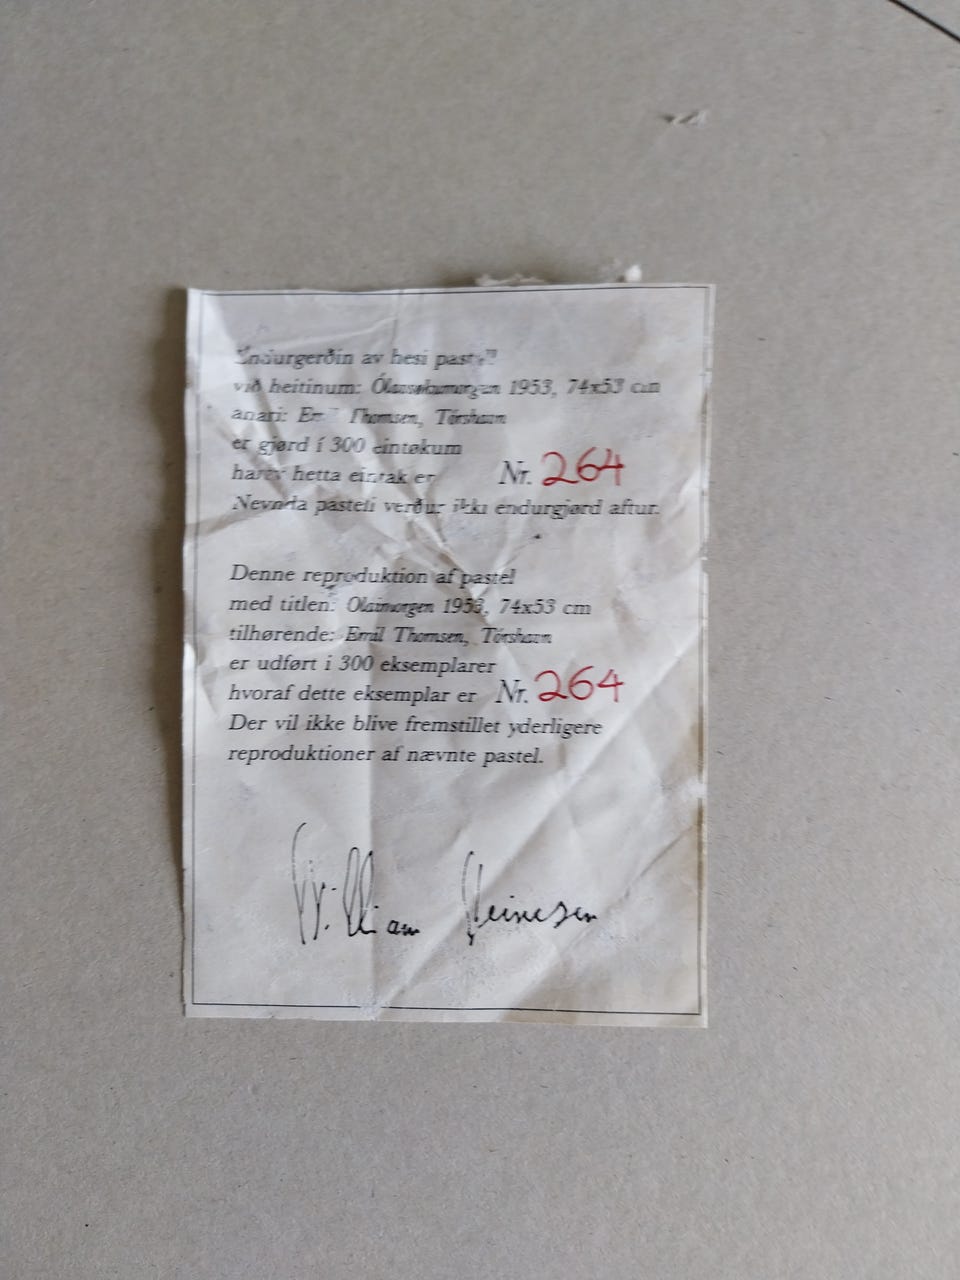 Endurgerðin av hesi pastell
við heitinum: Ólavsøkumorgun 1953, 74x53 cm
anari: Emil Thomsen, Tórshavn
er gjørd í 300 eintøkum
harav hetta eintak er Nr. 264
Nevnda pastell verður ikki endurgjørd aftur.
Denne reproduktion af pastel
med titlen: Olaimorgen 1953, 74x53 cm
tilhørende: Emil Thomsen, Tórshavn
er udført i 300 eksemplarer
hvoraf dette eksemplar er Nr. 264
Der vil ikke blive fremstillet yderligere
reproduktioner af nævnte pastel.
William Heinesen